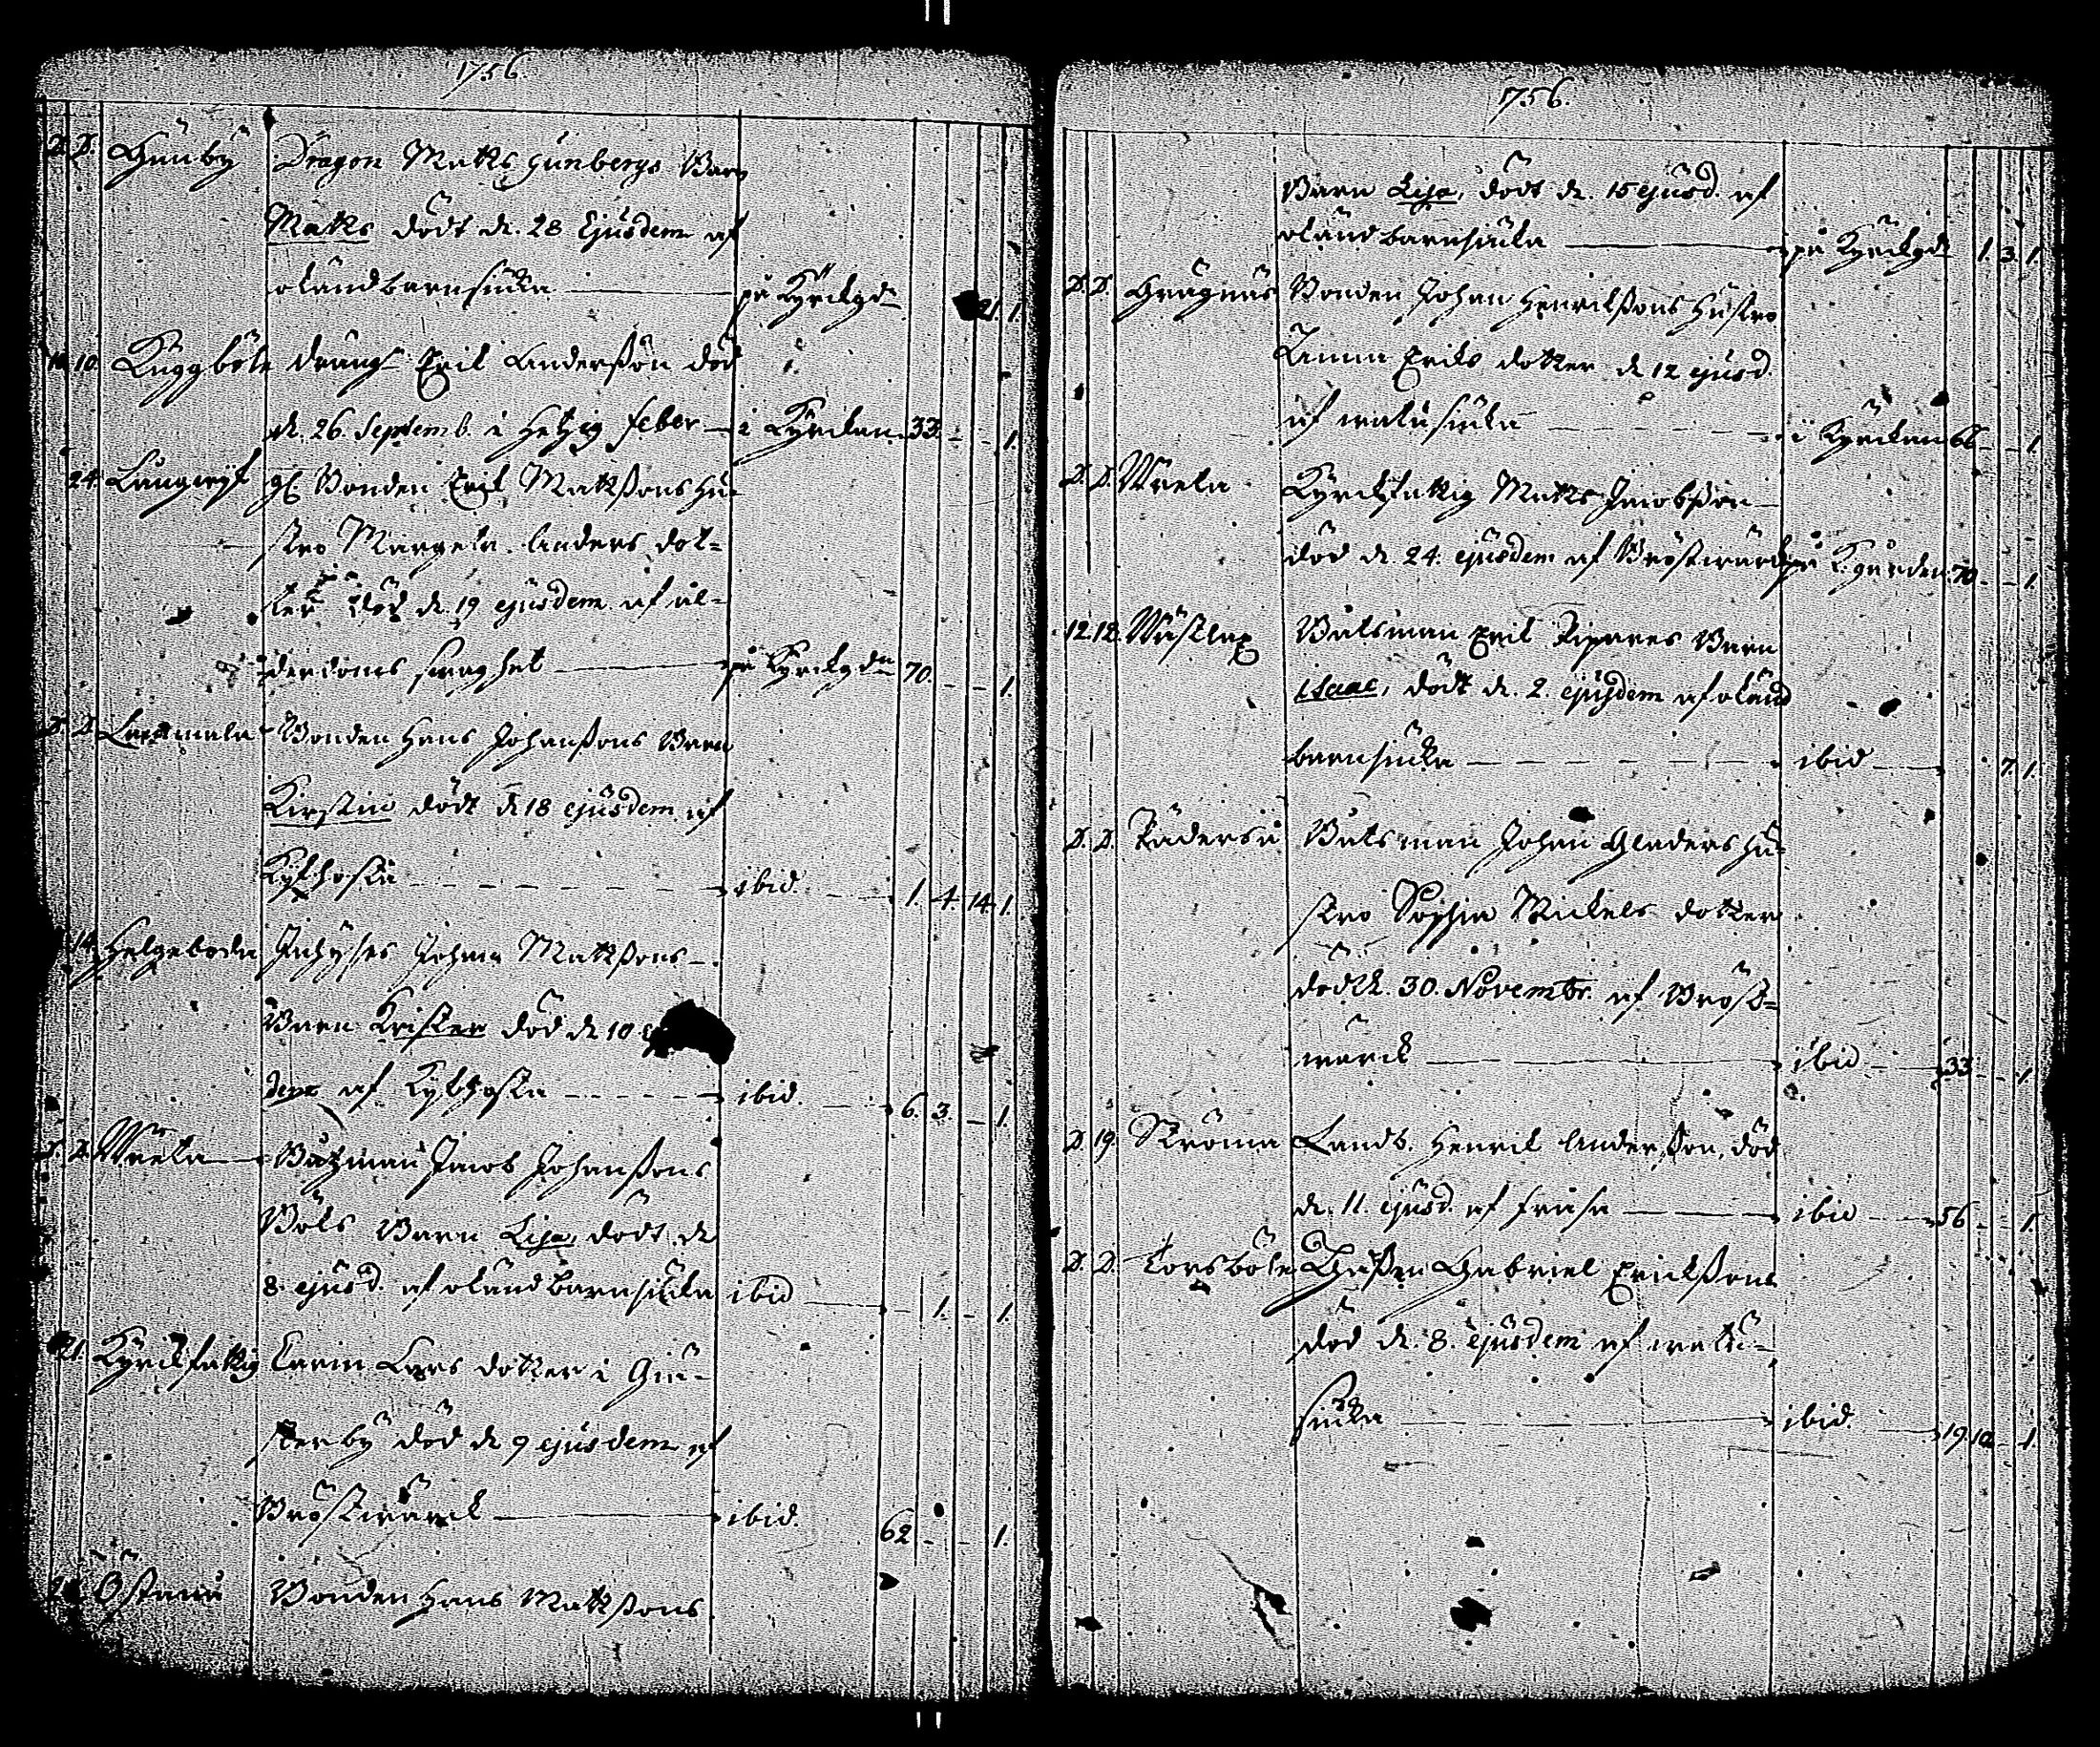 1756.
D. D. Gunby Dragon Matts Gunbergs Barn
Matts dödt d. 28 Ejusdem af
okänd barnsiuka på Kyrkgd 21. 1.
10. Kuggböle drängn Erik Andersson död
d. 26. Septemb. i hetzig feber i Kyrckan. 33. - - 1.
24. Långwijk gl. Bonden Erik Mattssons hu-
stro Margeta Anders dot-
ter död d. 19 ejusdem af ål-
derdoms swaghet på Kyrckgdn 70. - - 1.
D. D. Lertmala Bonden Hans Johanssons Barn
Kirstin dödt d 18 ejusdem af
Kykhosta ibid. 1. 4. 14. 1.
14. Helgeboda Inhyses Johan Mattssons
Barn Krister död d 10
dem af Kykhosta ibid. 6. 3. - 1.
D. D. Wreta Båtzman Jacob Johanssons
Böls Barn Lisa, dödt d
8. ejusd. af okänd Barnsiuka ibid - 1. - 1.
21. Kyrckfattig Carin Lars dotter i Giu-
sterby död d 9 ejusdem af
Bröstwärck ibid. 62 - - 1.
Östanå Bonden Hans Mattssons
1756.
Barn Lisa, dödt d. 15 ejusd. af
okänd barnsiuka på Kyrckgd 1. 3. 1.
D. D. Grägnäs Bonden Johan Henrikssons hustro
Anna Eriks dotter d 12 ejusd.
af matusiuka i Kyrckan 66 - - 1.
D. D. Wreta Kyrckfattig Matts Jacobsson
död d. 24. ejusdem af Bröstwärck på K. gården. 70 - - 1.
12. 12. Wästlax Båtsman Erik Ripares Barn
Isaac, dödt d. 2. ejusdem af okänd
barnsiuka ibid 7. 1.
D. D. Råderså Båtsman Johan Gladers hu-
stro Sophia Mickels dotter
död d. 30. Novembr. af Bröst-
wärck ibid 33 - - 1.
D. 19. Ströma Landb. Henrik Andersson, död
d. 11. ejusd. af fråsa ibid 56 - - 1.
D. D. Torsböle Gabriel Erickssons
död d. 8. ejusdem af matu-
siuka ibid. 19. 10 - 1.